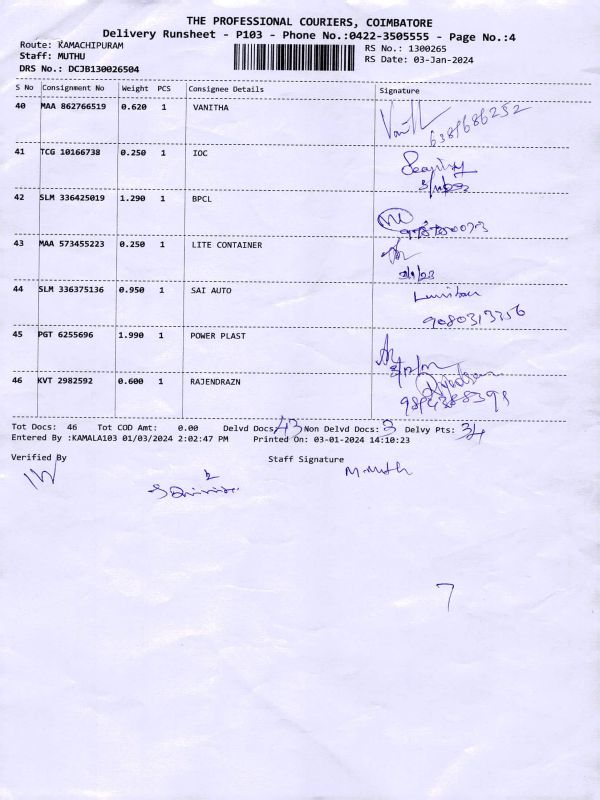 THE PROFESSIONAL COURIERS, COIMBATORE
Delivery Runsheet - P103 - Phone No.:0422-3505555 - Page No.:4
Route: KAMACHIPURAM
RS No.: 1300265
Staff: MUTHU
RS Date: 03-Jan-2024
DRS No.: DCJB130026504
S No Consignment No Weight PCS Consignee Details Signature
40 MAA 862766519 0.620 1 VANITHA
6389686252
41 TCG 10166738 0.250 1 IOC
42 SLM 336425019 1.290 1 BPCL
43 MAA 573455223 0.250 1 LITE CONTAINER
44 SLM 336375136 0.950 1 SAI AUTO
9080313356
45 PGT 6255696 1.990 1 POWER PLAST
46 KVT 2982592 0.600 1 RAJENDRAZN
9894388399
Tot Docs: 46 Tot COD Amt: 0.00 Delvd Docs: 43 Non Delvd Docs: 3 Delvy Pts: 34
Entered By :KAMALA103 01/03/2024 2:02:47 PM Printed On: 03-01-2024 14:10:23
Verified By Staff Signature
M. Muth
7